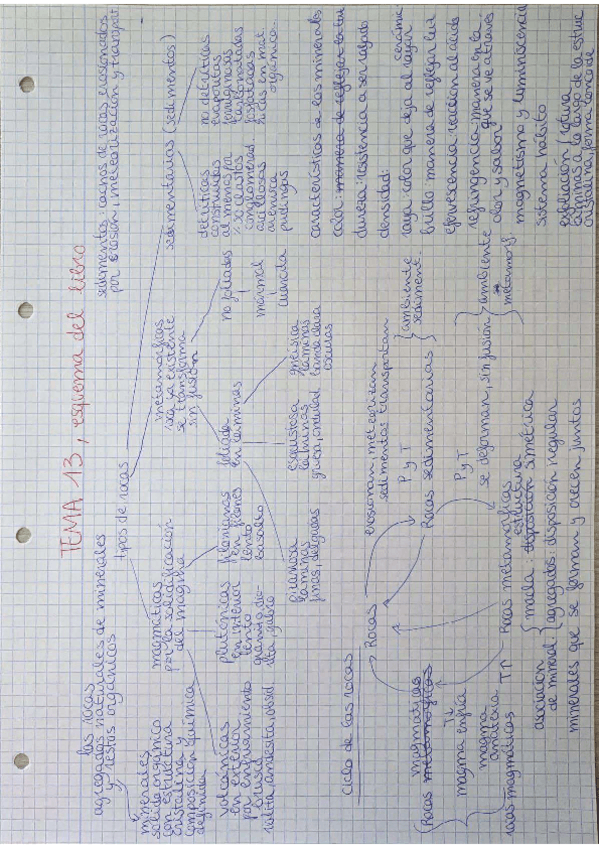 TEMA 13, esquema del libro
las rocas
agregados naturales de minerales
y restos orgánicos
tipos de rocas
sedimentos: cachos de rocas erosionados
por erosión, meteorización y transport.
minerales
sólido inorgánico
con estructura
cristalina y
composición química
definida
magmáticas
por la solidificación
del magma
metamórficas
roca ya existente
se transforma
sin fusión
sedimentarias (sedimentos)
volcánicas
en exterior
por enfriamiento
brusco
riolita andesita, obsid.
plutónicas
en interior
lento
granito, dio-
rita, gabro
filonianas
en filones
lento
basalto
foliadas
en láminas
no foliadas
mármol
cuarcita
pizarrosa
láminas
finas, delgadas
esquistosa
láminas
gruesa, ondulad
gneisica
láminas
banda clara
oscuras
detríticas
construidas
al menos por
% 50 de clastos
conglomerad
arcillosas
arenisca
pudingas
no detríticas
evaporitas
ferruginosas
carbonatadas
fosfatadas
ricas en mat.
orgánica
características de los minerales
color: manera de reflejar la luz
dureza: resistencia a ser rayado
densidad:
raya: color que deja al rayar
cerámic
brillo: manera de reflejar luz
efervescencia: reacción al ácido
refringencia: manera en la
que se ve a través
olor y sabor
magnetismo y luminiscencia
sistema hábito
exfoliación / rotura
láminas a lo largo de la estruc
cristalina, forma concoide
ciclo de las rocas
Rocas
erosionan, meteorizan
sedimentos transportan
P y T
ambiente
sediment.
Rocas sedimentarias
P y T
se deforman, sin fusión
ambiente
metamorf.
Rocas metamórficas
T↑
magmáticas
Rocas metamórficas
T↓
magma enfría
magma
anatexia
rocas magmáticas
asociación
de mineral
macla: disposición simétrica
estructura
agregados: disposición regular
minerales que se forman y crecen juntos